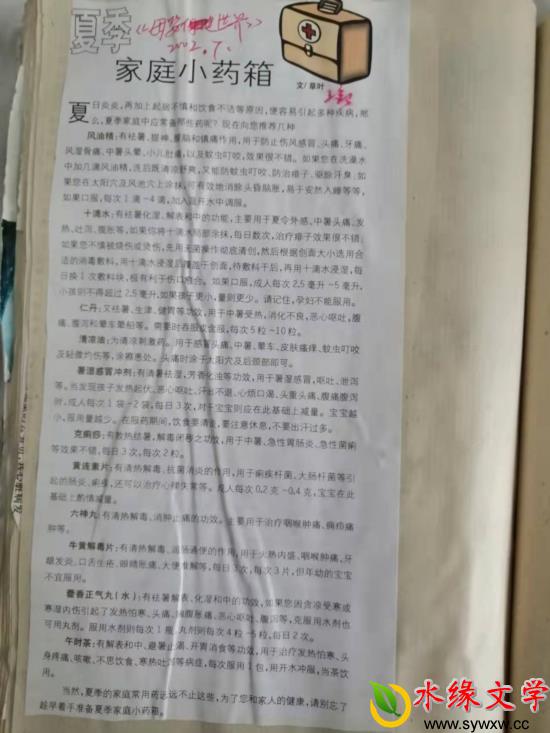 夏季
2002.7.
家庭小药箱
文/草叶
夏日炎炎，再加上起居不慎和饮食不洁等原因，便容易引起多种疾病，那
么，夏季家庭中应常备那些药呢？现在向您推荐几种
风油精：有祛暑、提神、醒脑和镇痛作用，用于防止伤风感冒、头痛、牙痛、
风湿骨痛、中暑头晕、小儿肚痛，以及蚊虫叮咬，效果很不错。如果您在洗澡水
中加几滴风油精，洗后既清凉舒爽，又能防蚊虫叮咬、防治痱子、驱除汗臭；如
果您在太阳穴及风池穴上涂抹，可有效地消除头昏脑胀，易于安然入睡等等，
如果口服，每次1滴-4滴，加入温开水中调服。
十滴水：有祛暑化湿、解表和中的功能，主要用于夏令外感、中暑头痛、发
热、吐泻、腹胀等，如果你将十滴水局部涂抹，每日数次，治疗痱子效果很不错；
如果您不慎被烧伤或烫伤，先用无菌操作彻底清创，然后根据创面大小选用合
适的消毒敷料，用十滴水浸湿后覆盖于创面，待敷料干后，再用十滴水浸湿，每
日换1次敷料块，极有利于伤口愈合。如果口服，成人每次2.5毫升-5毫升，
小孩则不得超过2.5毫升，如果孩子更小，量则更少。请记住，孕妇不能服用。
仁丹：又祛暑、生津、健胃等功效，用于中暑受热，消化不良，恶心呕吐，腹
痛、腹泻和晕车晕船等。需要时吞服或含服，每次5粒-10粒。
清凉油：为清凉刺激药。用于感冒头痛、中暑、晕车、皮肤瘙痒、蚊虫叮咬
及轻微灼伤等，涂擦患处。头痛时涂于太阳穴及后颈部即可。
暑湿感冒冲剂：有清暑祛湿，芳香化浊等功效，用于暑湿感冒，呕吐、泄泻
等。当发现孩子发热起伏、恶心呕吐、汗出不退、心烦口渴、头重头痛、腹痛腹泻
时，成人每次1袋-2袋，每日3次，对于宝宝则应在此基础上减量。宝宝越
小，服用量越少。在服药期间，饮食要清淡，要注意休息，不要出汗过多。
克痢痧：有散热结暑，解毒闭秽之功效，用于中暑、急性胃肠炎、急性菌痢
等效果不错，每日3次，每次2粒。
黄连素片：有清热解毒、抗菌消炎的作用，用于痢疾杆菌、大肠杆菌等引
起的肠炎、痢疾，还可以治疗心律失常等。成人每次0.2克-0.4克，宝宝在此
基础上酌情减量。
六神丸：有清热解毒、消肿止痛的功效。主要用于治疗咽喉肿痛、痈疹痛
肿等。
牛黄解毒片：有清热解毒、润肠通便的作用，用于火热内盛、咽喉肿痛，牙
龈发炎、口舌生疮、眼睛胀痛、大便难解等，每日3次，每次3片，但年幼的宝宝
不宜服用。
藿香正气丸（水）：有祛暑解表、化湿和中的功效，如果您因贪凉受寒或
寒湿内伤引起了发热怕寒、头痛、胸腹胀痛、恶心呕吐、腹泻等，克服用水剂也
可用丸剂。服用水剂则每次1瓶，丸剂则每次4粒-5粒，每日2次。
午时茶：有解表和中、避暑止渴、开胃消食等功效，用于治疗发热怕寒、头
身疼痛、咳嗽、不思饮食、寒热吐泻等病症，每次服用1包，用开水冲服，当茶饮
用。
当然，夏季的家庭常用药远远不止这些，为了您和家人的健康，请别忘了
趁早着手准备夏季家庭小药箱。
水缘文学
www.sywxw.cc